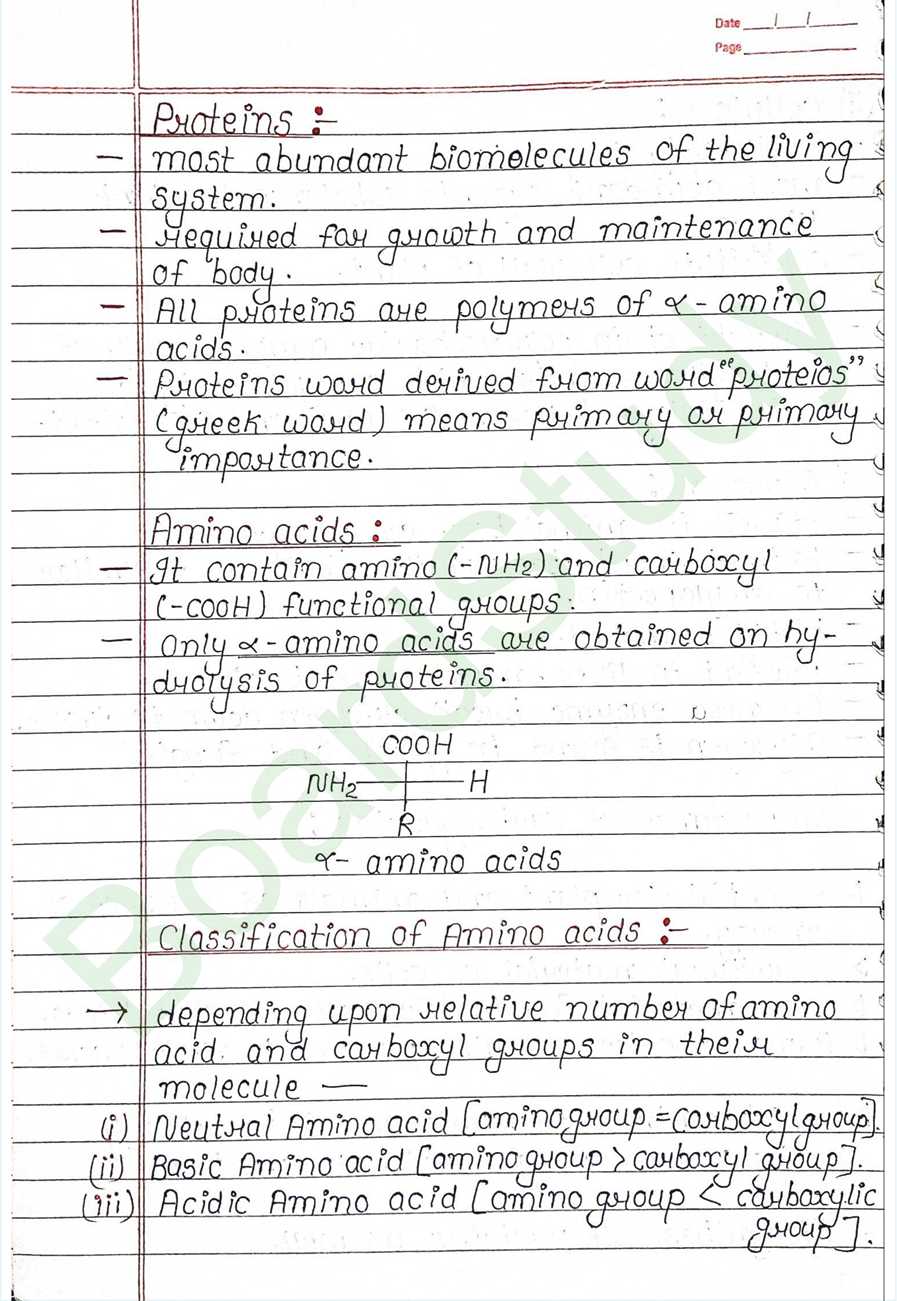 Date / /
Page
Proteins :-
– most abundant biomolecules of the living
system.
– required for growth and maintenance
of body.
– All proteins are polymers of α- amino
acids.
– Proteins word derived from word "proteios"
(greek word) means primary or primary
importance.
Amino acids :
– It contain amino (-NH2) and carboxyl
(-COOH) functional groups.
– only α-amino acids are obtained on hy-
drolysis of proteins.
COOH
NH2 H
R
α- amino acids
Classification of Amino acids :-
→ depending upon relative number of amino
acid and carboxyl groups in their
molecule —
(i) Neutral Amino acid [amino group = carboxyl group].
(ii) Basic Amino acid [amino group > carboxyl group].
(iii) Acidic Amino acid [amino group < carboxylic
group].
BoardStudy